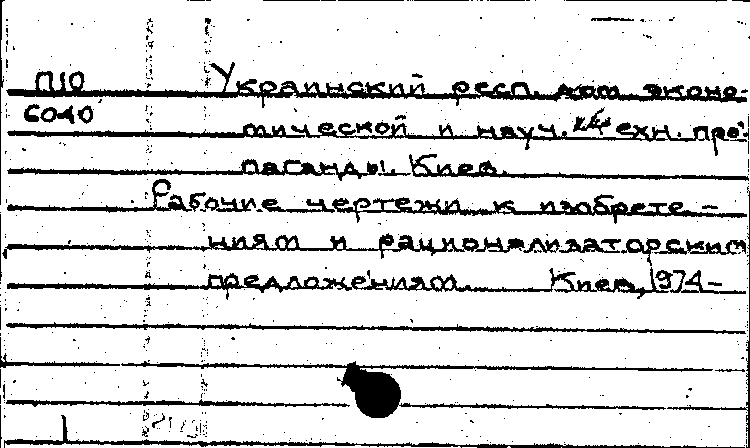 П10 Украинский респ. дом эконо-
6040 мической и науч. техн. про-
паганды. Киев.
Рабочие чертежи к изобрете-
ниям и рационализаторским
предложениям. Киев, 1974-